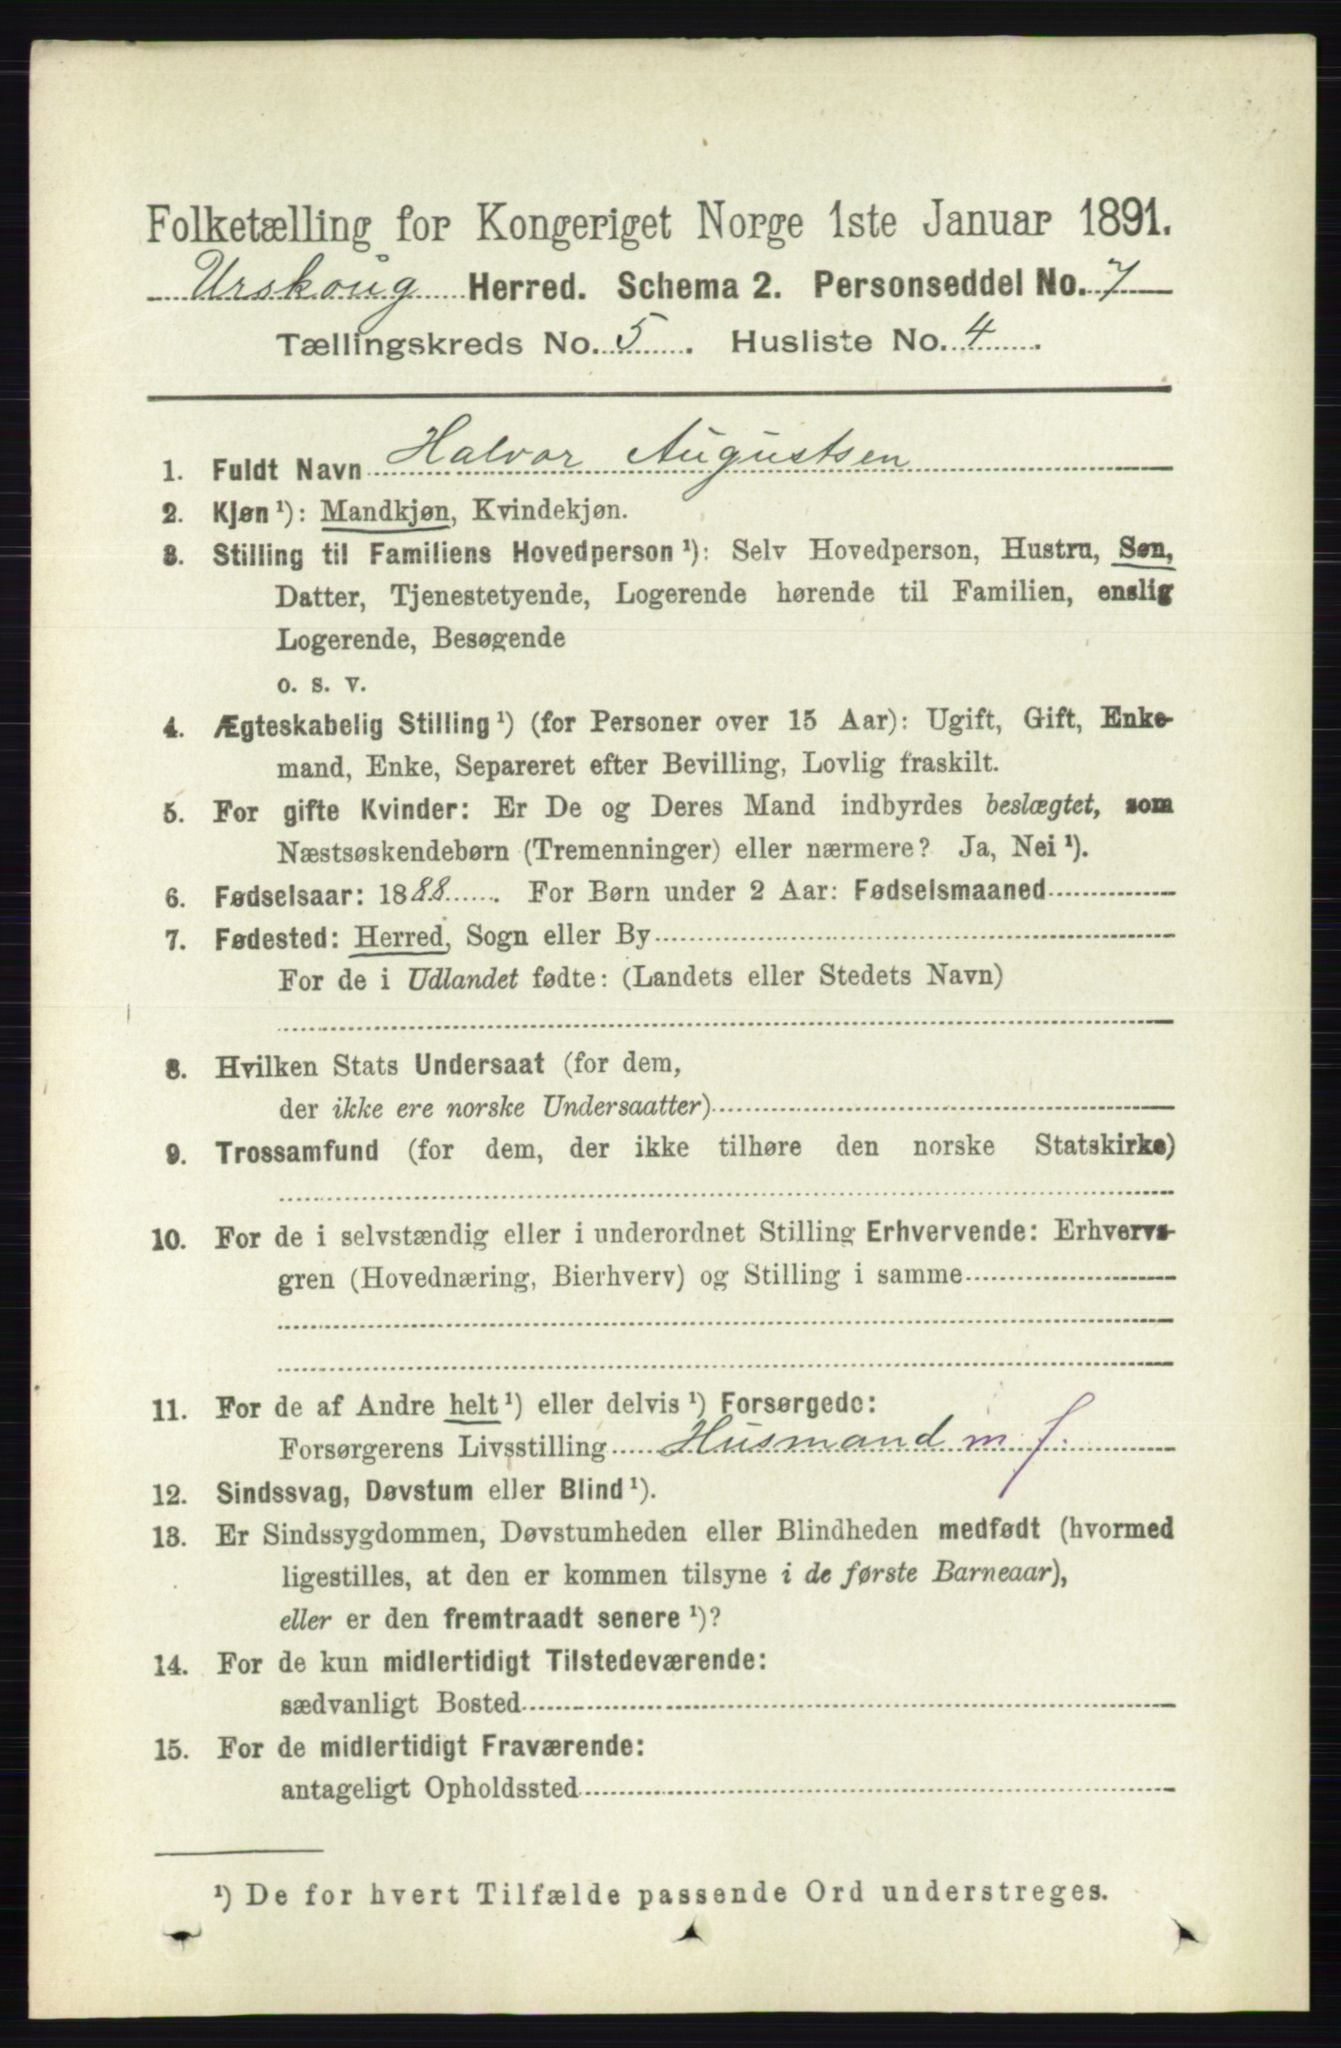 Folketælling for Kongeriget Norge 1ste Januar 1891.
Urskoug Herred. Schema 2. Personseddel No. 7
Tællingskreds No. 5. Husliste No. 4.
1. Fuldt Navn Halvor Augustsen
2. Kjøn¹): Mandkjøn, Kvindekjøn.
3. Stilling til Familiens Hovedperson¹): Selv Hovedperson, Hustru, Søn,
Datter, Tjenestetyende, Logerende hørende til Familien, enslig
Logerende, Besøgende
o. s. v.
4. Ægteskabelig Stilling¹) (for Personer over 15 Aar): Ugift, Gift, Enke-
mand, Enke, Separeret efter Bevilling, Lovlig fraskilt.
5. For gifte Kvinder: Er De og Deres Mand indbyrdes beslægtet, som
Næstsøskendebørn (Tremenninger) eller nærmere? Ja, Nei¹).
6. Fødselsaar: 1888. For Børn under 2 Aar: Fødselsmaaned
7. Fødested: Herred, Sogn eller By
For de i Udlandet fødte: (Landets eller Stedets Navn)
8. Hvilken Stats Undersaat (for dem,
der ikke ere norske Undersaatter)
9. Trossamfund (for dem, der ikke tilhøre den norske Statskirke)
10. For de i selvstændig eller i underordnet Stilling Erhvervende: Erhvervs-
gren (Hovednæring, Bierhverv) og Stilling i samme
11. For de af Andre helt¹) eller delvis¹) Forsørgede:
Forsørgerens Livsstilling Husmand m. j.
12. Sindssvag, Døvstum eller Blind¹).
13. Er Sindssygdommen, Døvstumheden eller Blindheden medfødt (hvormed
ligestilles, at den er kommen tilsyne i de første Barneaar),
eller er den fremtraadt senere¹)?
14. For de kun midlertidigt Tilstedeværende:
sædvanligt Bosted
15. For de midlertidigt Fraværende:
antageligt Opholdssted
¹) De for hvert Tilfælde passende Ord understreges.